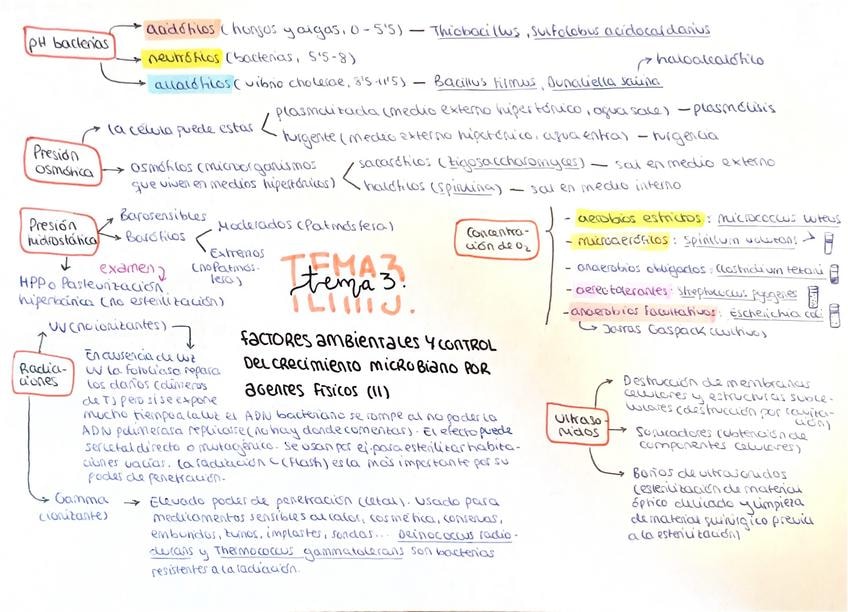 pH bacterias
acidófilos (hongos y algas, 0-5'5) — Thiobacillus, Sulfolobus acidocaldarius
neutrófilos (bacterias, 5'5-8)
haloalcalófilo
alcalófilos (vibrio cholerae, 8'5-11'5) — Bacillus firmus, Dunaliella salina
Presión osmótica
la célula puede estar
plasmolizada (medio externo hipertónico, agua sale) — plasmólisis
turgente (medio externo hipotónico, agua entra) — turgencia
osmófilos (microorganismos
que viven en medios hipertónicos)
sacarófilos (zigosaccharomyces) — sal en medio externo
halófilos (spirulina) — sal en medio interno
Presión
hidrostática
Barosensibles
Barófilos
Moderados (Patmósfera)
Extremos
(no Patmós-
fera)
examen
HPP o Pasteurización
hiperbárica (no esterilización)
Concentra-
ción de O2
- aerobios estrictos: micrococcus luteus
- microaerófilos: Spirillum volutans
- anaerobios obligados: Clostridium tetani
- aerotolerantes: Streptococcus pyogenes
- anaerobios facultativos: Escherichia coli
Jarras Gaspack (cultivo)
TEMA 3
tema 3.
FACTORES AMBIENTALES Y CONTROL
DEL CRECIMIENTO MICROBIANO POR
AGENTES FÍSICOS (II)
Radia-
ciones
UV (no ionizantes)
En ausencia de luz
UV la fotoliasa repara
los daños (dímeros
de T) pero si se expone
mucho tiempo a la luz el ADN bacteriano se rompe al no poder la
ADN polimerasa replicarse (no hay donde comentar). El efecto puede
ser letal directo o mutagénico. Se usan por ej. para esterilizar habita-
ciones vacías. La radiación C (Flash) es la más importante por su
poder de penetración.
Gamma
(ionizante)
Elevado poder de penetración (letal). Usado para
medicamentos sensibles al calor, cosmética, conservas,
embutidos, zumos, implantes, sondas... Deinococcus radio-
durans y Thermococcus gammatolerans son bacterias
resistentes a la radiación.
Ultraso-
nidos
Destrucción de membranas
celulares y estructuras subce-
lulares (destrucción por cavita-
ción)
Sonicadores (obtención de
componentes celulares)
Baños de ultrasonidos
(esterilización de material
óptico delicado y limpieza
de material quirúrgico previa
a la esterilización)